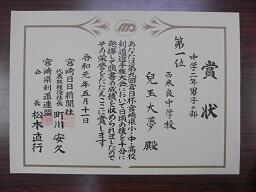 賞状
中学二年男子の部
第一位
西米良中学校
児玉大夢殿
あなたは第九回宮日杯宮崎県小・中・高校
剣道選手権大会において日頃の技を十分に
発揮して頭書の成績を収められましたので
その栄誉をたたえここに賞します
令和元年五月十一日
宮崎日日新聞社
代表取締役社長 町川安久
宮崎県剣道連盟
会長 松木直行